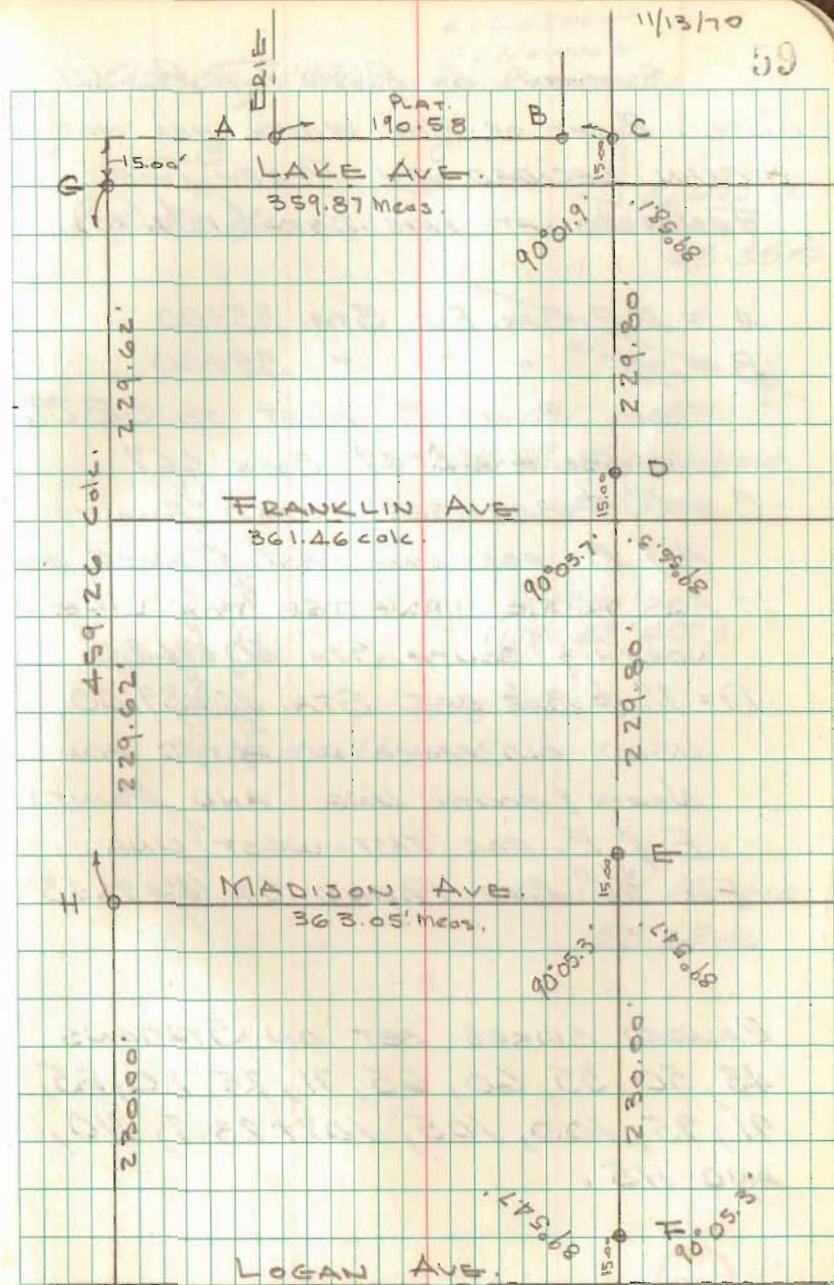 11/13/70
59
ERIE
PLAT.
A 190.58 B C
15.00' 15.00
G LAKE AVE.
359.87 Meas.
90°01.9' 89°58.1'
229.62' 229.80'
D
459.26 Calc.
FRANKLIN AVE 15.00
361.46 calc.
90°03.7' 89°56.3'
229.62' 229.80'
E
H MADISON AVE. 15.00
363.05' Meas.
90°05.3' 89°54.7'
230.00' 230.00'
89°54.7' F 90°05.3'
LOGAN AVE. 15.00